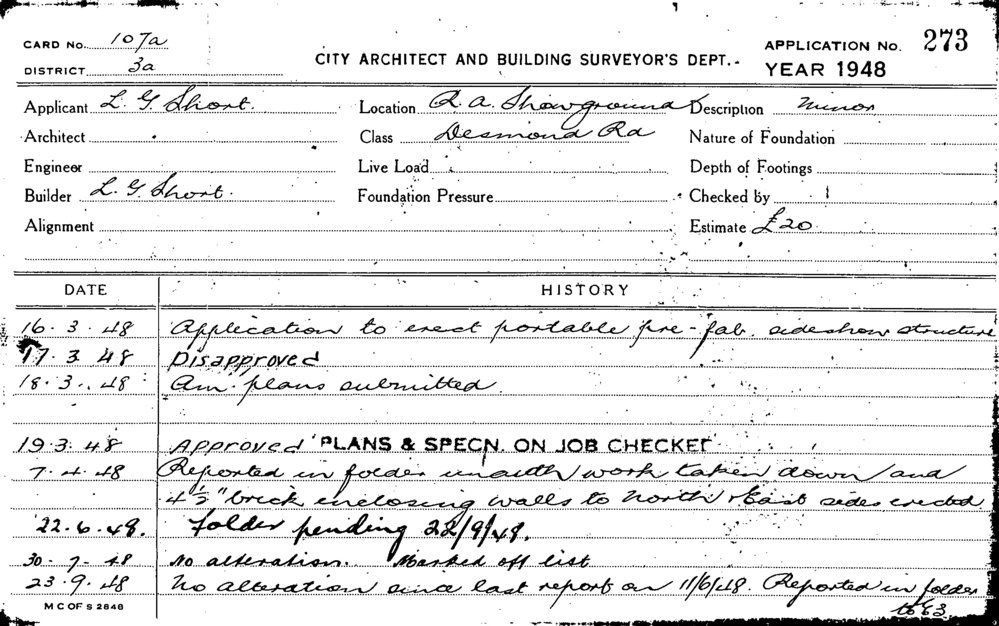 CARD No. 107a
DISTRICT 3a
CITY ARCHITECT AND BUILDING SURVEYOR'S DEPT.
APPLICATION No. 273
YEAR 1948
Applicant L. G. Short. Location R. A. Showground Description Minor
Architect Class Desmond Rd Nature of Foundation
Engineer Live Load Depth of Footings
Builder L. G. Short. Foundation Pressure Checked by
Alignment Estimate £20
DATE HISTORY
16. 3. 48 Application to erect portable pre-fab. sideshow structure
17. 3 48 Disapproved
18. 3. 48 Am. plans submitted
19. 3. 48 Approved PLANS & SPECN. ON JOB CHECKED
7. 4. 48 Reported in folder unauth work taken down and
4½" brick enclosing walls to North & East sides erected
22. 6. 48. folder pending 22/9/48.
30. 7. 48 No alteration. Marked off list
23. 9. 48 No alteration since last report on 11/6/48. Reported in folder
M C OF S 2848